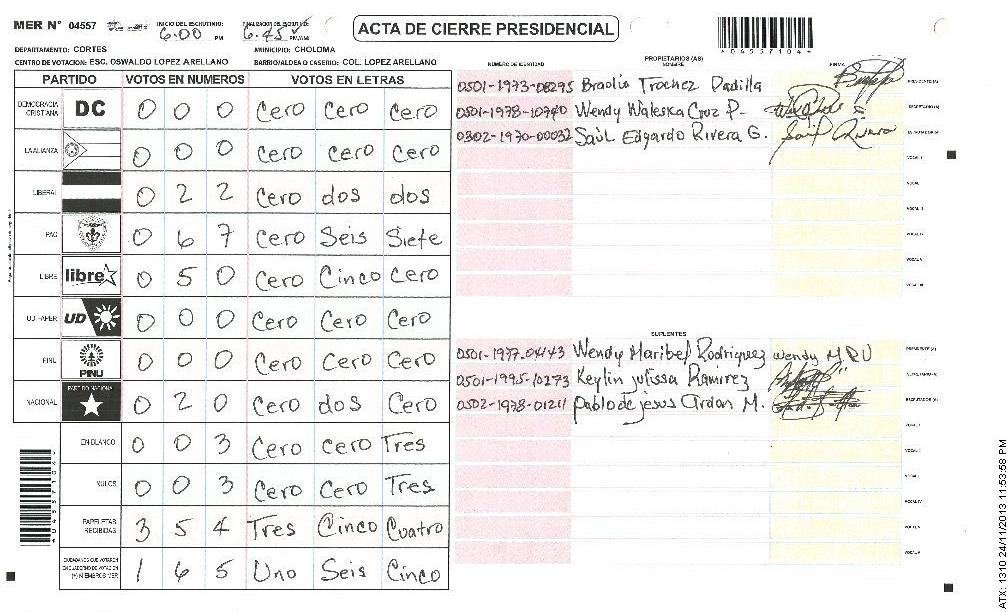 MER N° 04557 INICIO DEL ESCRUTINIO: 6:00 PM FINALIZACION DEL ESCRUTINIO: 6:45 PM/AM ACTA DE CIERRE PRESIDENCIAL
DEPARTAMENTO: CORTES MUNICIPIO: CHOLOMA
CENTRO DE VOTACION: ESC. OSWALDO LOPEZ ARELLANO BARRIO/ALDEA O CASERIO: COL. LOPEZ ARELLANO
PARTIDO VOTOS EN NUMEROS VOTOS EN LETRAS
DEMOCRACIA CRISTIANA DC 0 0 0 Cero Cero Cero
LA ALIANZA 0 0 0 Cero Cero Cero
LIBERAL 0 2 2 Cero dos dos
PAC 0 6 7 Cero Seis Siete
LIBRE libre 0 5 0 Cero Cinco Cero
UD FAPER UD 0 0 0 Cero Cero Cero
PINU PINU 0 0 0 Cero Cero Cero
NACIONAL PARTIDO NACIONAL 0 2 0 Cero dos Cero
EN BLANCO 0 0 3 Cero cero Tres
NULOS 0 0 3 Cero Cero Tres
PAPELETAS RECIBIDAS 3 5 4 Tres Cinco Cuatro
CIUDADANOS QUE VOTARON EN CUADERNO DE VOTACION (+) MIEMBROS MER 1 6 5 Uno Seis Cinco
PROPIETARIOS (AS)
NUMERO DE IDENTIDAD NOMBRE FIRMA
0501-1973-08295 Braulio Trochez Padilla PRESIDENTE (A)
0501-1978-10740 Wendy Waleska Cruz P. SECRETARIO (A)
0302-1970-00032 Saúl Edgardo Rivera G. ESCRUTADOR (A)
VOCAL I
VOCAL II
VOCAL III
VOCAL IV
VOCAL V
VOCAL VI
SUPLENTES
0501-1977-04143 Wendy Maribel Rodriquez Wendy MRU PRESIDENTE (A)
0501-1995-10273 Keylin julissa Ramirez SECRETARIO (A)
0502-1978-01211 Pablo de jesus Ardon M. ESCRUTADOR (A)
VOCAL I
VOCAL II
VOCAL III
VOCAL IV
VOCAL V
VOCAL VI
ATX: 1310 24/11/2013 11:53:58 PM